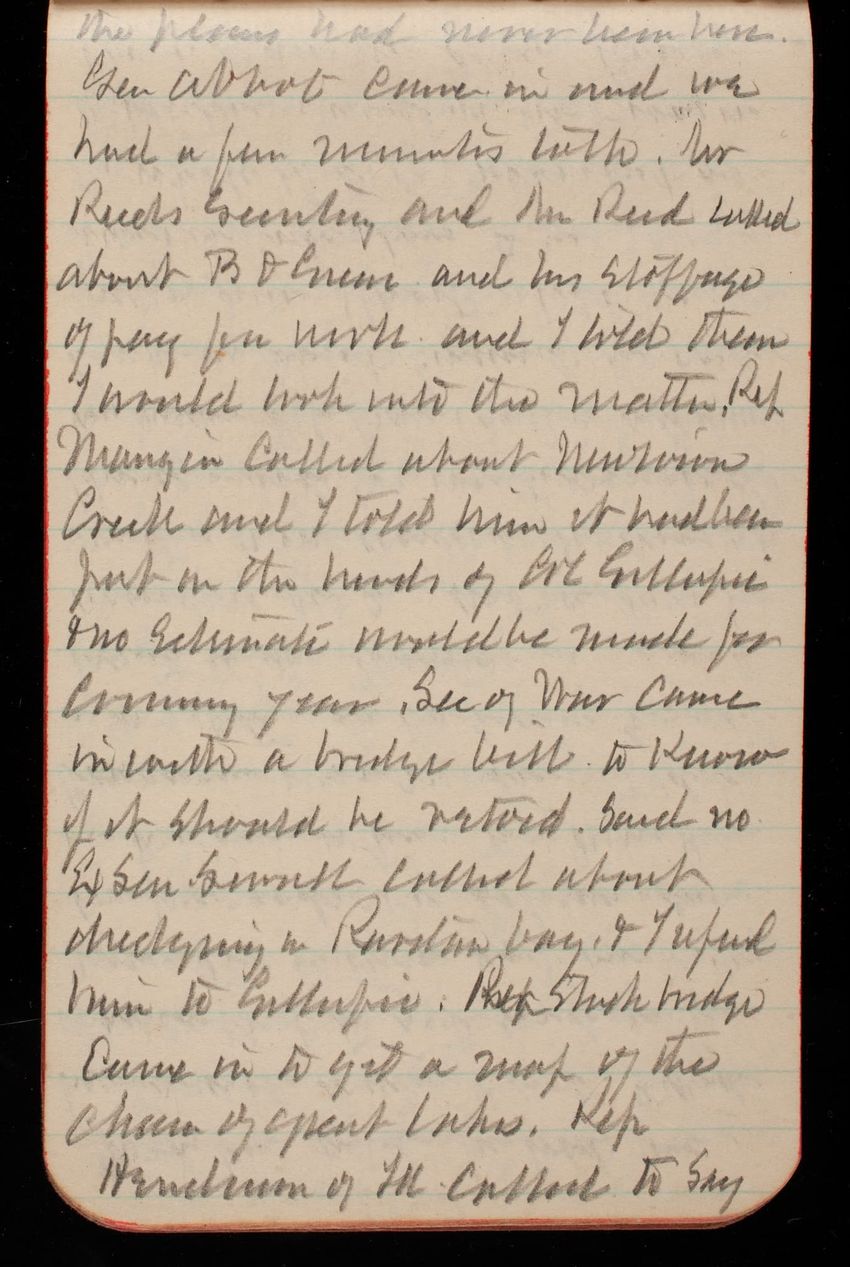 the places had never been here.
Gen Abbot came in and we
had a few minutes talk. Mr
Reeds Secretary and Mr Reed called
about B & and his stoppage
of pay for work and I told them
I would look into the matter. Rep
Mangin called about Newtown
Creek and I told him it had been
put in the hands of Col Gillespie
& no Estimate would be made for
coming year. Sec of War came
in with a bridge bill to know
if it should be vetoed. Said no
Ex Sen Sewell called about
dredging in Raritan bay. & I referred
him to Gillespie. Rep Stockbridge
came in to get a map of the
chain of great lakes. Rep
Henderson of Ill called to say